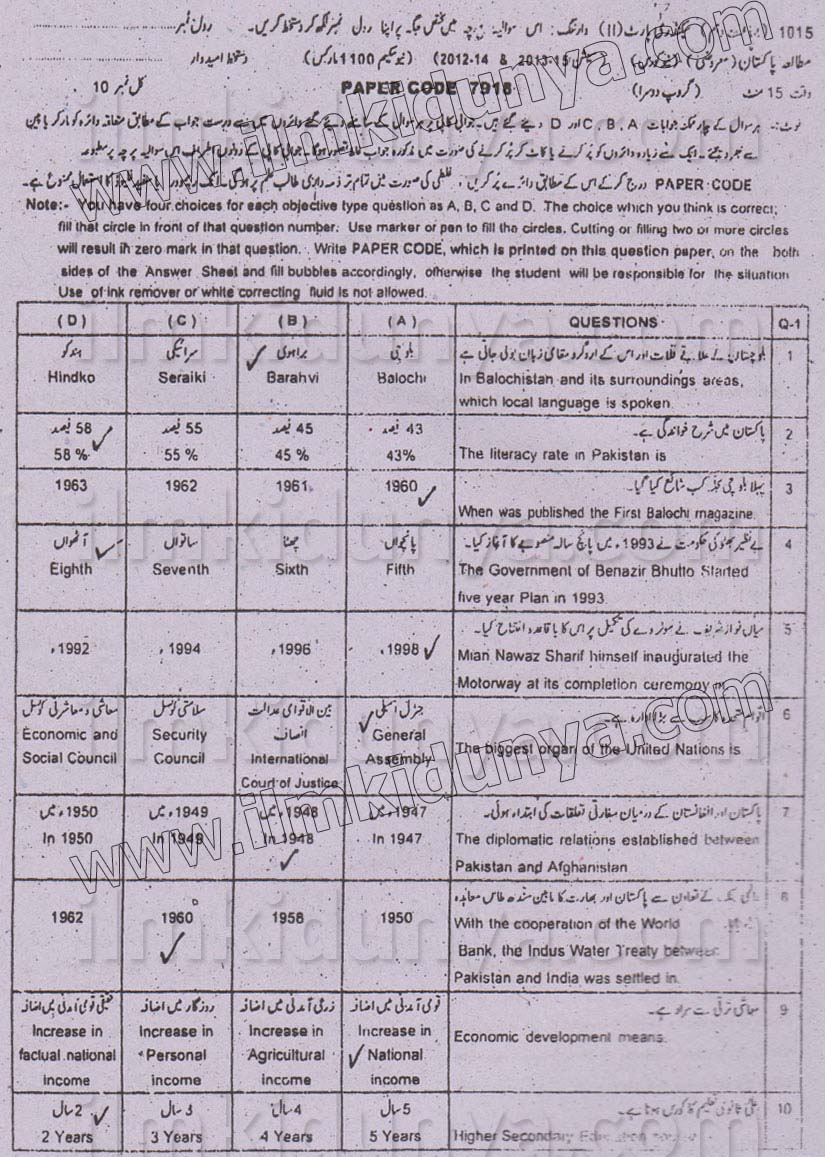 1015 سیکنڈری پارٹ (II) وارننگ: اس سوالیہ پرچہ میں مختص جگہ پر اپنا رول نمبر لکھ کر دستخط کریں۔ رول نمبر
مطالعہ پاکستان (معروضی) (سیشن 2013-15 & 2012-14) (نیو سکیم 1100 مارکس) دستخط امیدوار
وقت 15 منٹ (گروپ دوسرا) PAPER CODE 7918 کل نمبر 10
نوٹ:- ہر سوال کے چار ممکنہ جوابات A، B، C اور D دیئے گئے ہیں۔ جوابی کاپی پر ہر سوال کے سامنے دیئے گئے دائروں میں سے درست جواب کے مطابق متعلقہ دائرہ کو مارکر یا پین
سے بھر دیجئے۔ ایک سے زیادہ دائروں کو پُر کرنے یا کاٹ کر پُر کرنے کی صورت میں مذکورہ جواب غلط تصور ہوگا۔ جوابی کاپی کے دونوں اطراف اس سوالیہ پرچہ پر مطبوعہ
PAPER CODE درج کر کے اس کے مطابق دائرے پُر کریں، غلطی کی صورت میں تمام تر ذمہ داری طالب علم پر ہوگی۔ انک ریموور یا سفید فلیوڈ کا استعمال ممنوع ہے۔
Note:- You have four choices for each objective type question as A, B, C and D. The choice which you think is correct;
fill that circle in front of that question number. Use marker or pen to fill the circles. Cutting or filling two or more circles
will result in zero mark in that question. Write PAPER CODE, which is printed on this question paper, on the both
sides of the Answer Sheet and fill bubbles accordingly, otherwise the student will be responsible for the situation
Use of ink remover or white correcting fluid is not allowed.
( D ) ( C ) ( B ) ( A ) QUESTIONS Q-1
ہندکو سرائیکی براہوی بلوچی بلوچستان کے علاقے قلات اور اس کے اردگرد مقامی زبان بولی جاتی ہے 1
Hindko Seraiki Barahvi Balochi In Balochistan and its surroundings areas,
which local language is spoken.
58 فیصد 55 فیصد 45 فیصد 43 فیصد پاکستان میں شرح خواندگی ہے۔ 2
58 % 55 % 45 % 43% The literacy rate in Pakistan is
1963 1962 1961 1960 پہلا بلوچی مجلہ کب شائع کیا گیا۔ 3
When was published the First Balochi magazine.
آٹھواں ساتواں چھٹا پانچواں بے نظیر بھٹو کی حکومت نے 1993ء میں پانچ سالہ منصوبے کا آغاز کیا۔ 4
Eighth Seventh Sixth Fifth The Government of Benazir Bhutto Started
five year Plan in 1993
1992ء 1994ء 1996ء 1998ء میاں نواز شریف نے موٹروے کی تکمیل پر اس کا باقاعدہ افتتاح کیا۔ 5
Mian Nawaz Sharif himself inaugurated the
Motorway at its completion ceremony
معاشی و معاشرتی کونسل سلامتی کونسل بین الاقوامی عدالت انصاف جنرل اسمبلی اقوام متحدہ کا سب سے بڑا ادارہ ہے۔ 6
Economic and Social Council Security Council International Court of Justice General Assembly The biggest organ of the United Nations is
1950ء میں 1949ء میں 1948ء میں 1947ء میں پاکستان اور افغانستان کے درمیان سفارتی تعلقات کی ابتداء ہوئی۔ 7
In 1950 In 1949 In 1948 In 1947 The diplomatic relations established between
Pakistan and Afghanistan
1962 1960 1958 1950 عالمی بنک کے تعاون سے پاکستان اور بھارت کا مابین سندھ طاس معاہدہ 8
With the cooperation of the World
Bank, the Indus Water Treaty between
Pakistan and India was settled in.
حقیقی قومی آمدنی میں اضافہ روزگار میں اضافہ زرعی آمدنی میں اضافہ قومی آمدنی میں اضافہ معاشی ترقی سے مراد ہے۔ 9
Increase in factual national income Increase in Personal income Increase in Agricultural income Increase in National income Economic development means.
2 سال 3 سال 4 سال 5 سال اعلیٰ ثانوی تعلیم کا کورس ہوتا ہے۔ 10
2 Years 3 Years 4 Years 5 Years Higher Secondary Education
www.ilmkidunya.com
www.ilmkidunya.com
ilmkidunya.com